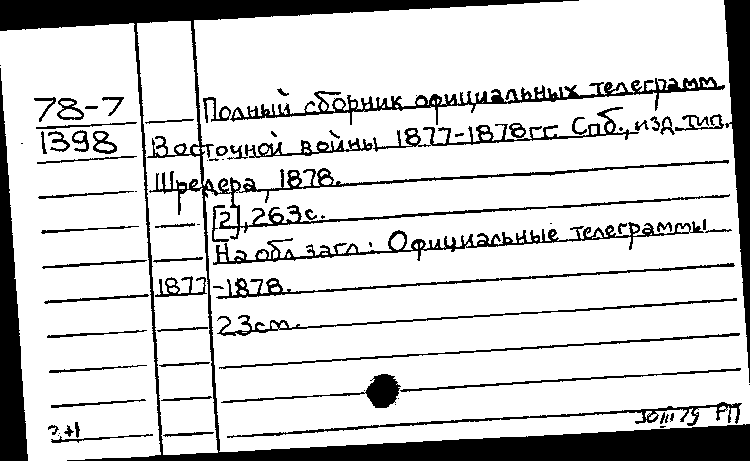 78-7 Полный сборник официальных телеграмм
1398 Восточной войны 1877-1878гг. Спб., изд. тип.
Шредера, 1878.
[2], 263с.
На обл. загл.: Официальные телеграммы
1877-1878.
23см.
3+1 30III79 РП